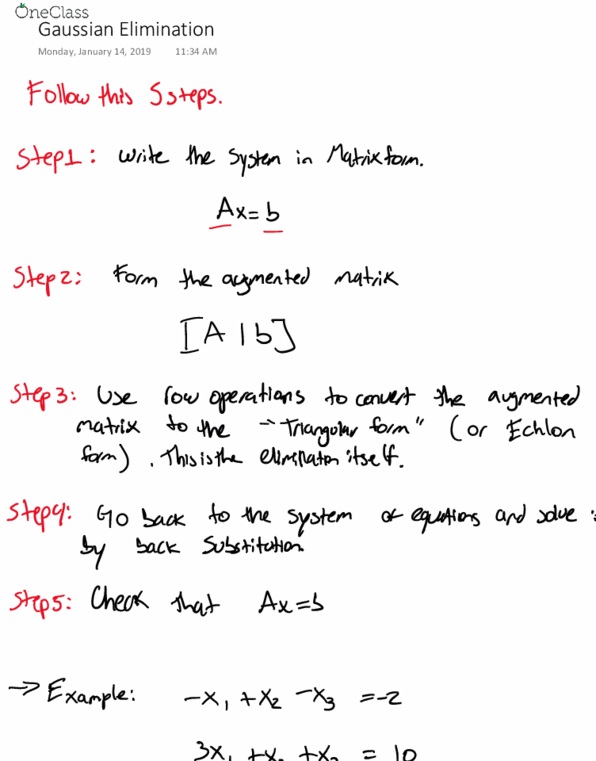 OneClass
Gaussian Elimination
Monday, January 14, 2019 11:34 AM
Follow this 5 steps.
Step1: Write the System in Matrix form.
Ax=b
Step2: Form the augmented matrix
[A|b]
Step3: Use row operations to convert the augmented
matrix to the "Triangular form" (or Echlon
form). This is the elimination itself.
Step4: Go back to the system of equations and solve it
by back Substitution
Step5: Check that Ax=b
→ Example: -x₁ +x₂ -x₃ =-2
3x₁ +x₂ +x₃ = 10